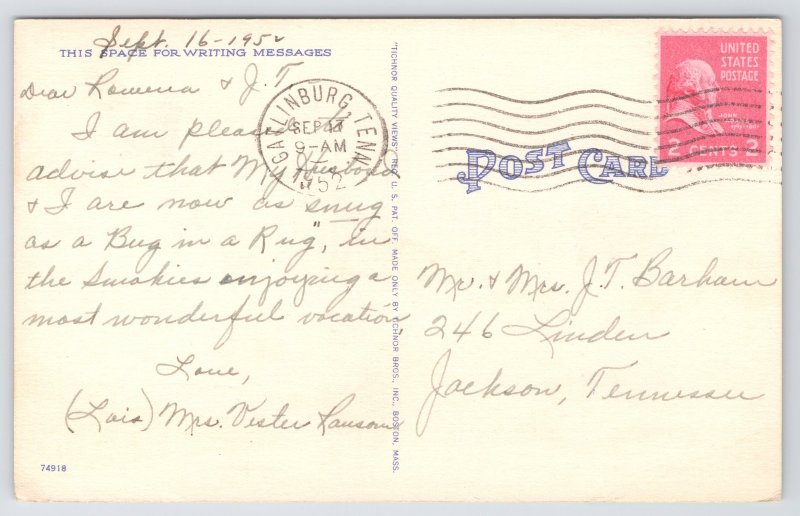 Sept. 16-1952
THIS SPACE FOR WRITING MESSAGES
Dear Rowena & J.T.
I am pleased to
advise that My Husband
& I are now as snug
as a Bug in a Rug", in
the Smokies enjoying a
most wonderful vacation,
Love,
(Lois) Mrs. Vester Ransom
74918
"TICHNOR QUALITY VIEWS," REG. U. S. PAT. OFF. MADE ONLY BY TICHNOR BROS., INC., BOSTON, MASS.
GATLINBURG, TENN.
SEP 17
9-AM
1952
UNITED
STATES
POSTAGE
JOHN
2 CENTS 2
POST CARD
Mr. & Mrs. J.T. Barham
246 Linden
Jackson, Tennessee